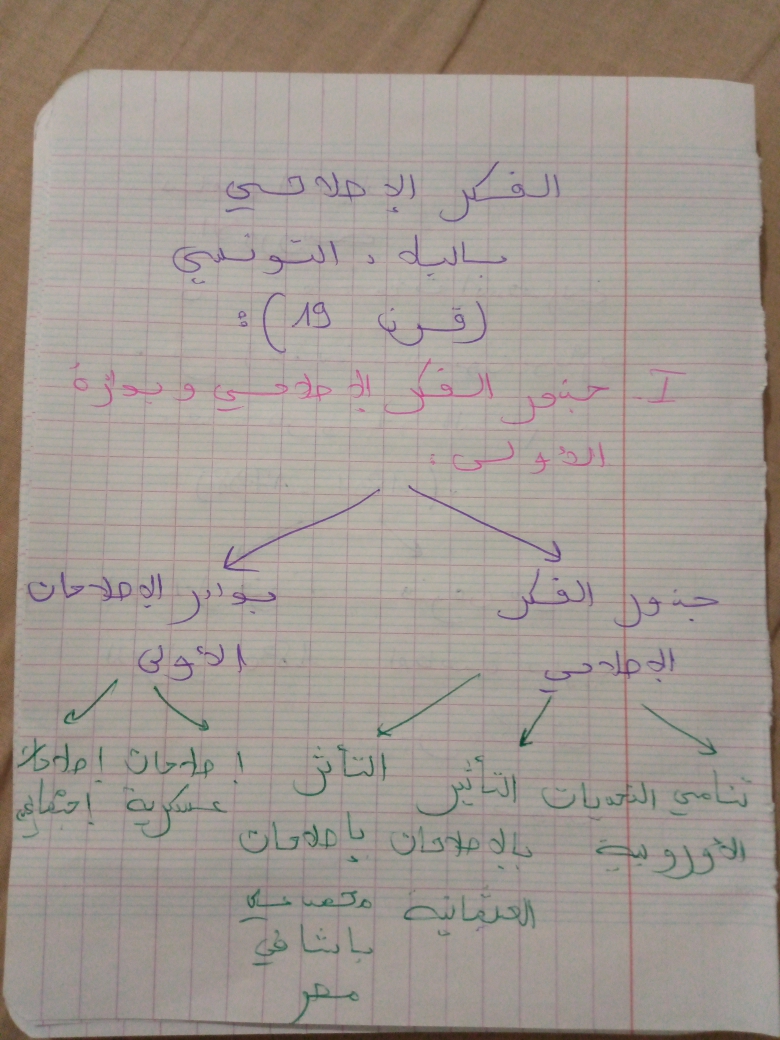 الفكر الإصلاحي
بالبلاد التونسي
(قرن 19):
I- جذور الفكر الإصلاحي و بوادره
الأولى:
جذور الفكر
الإصلاحي
بوادر الإصلاحات
الأولى
تنامي التحديات
الأوروبية
التأثير
بالإصلاحات
العثمانية
التأثر
بإصلاحات
محمد علي
باشا في
مصر
إصلاحات
عسكرية
إصلاحات
إجتماعي